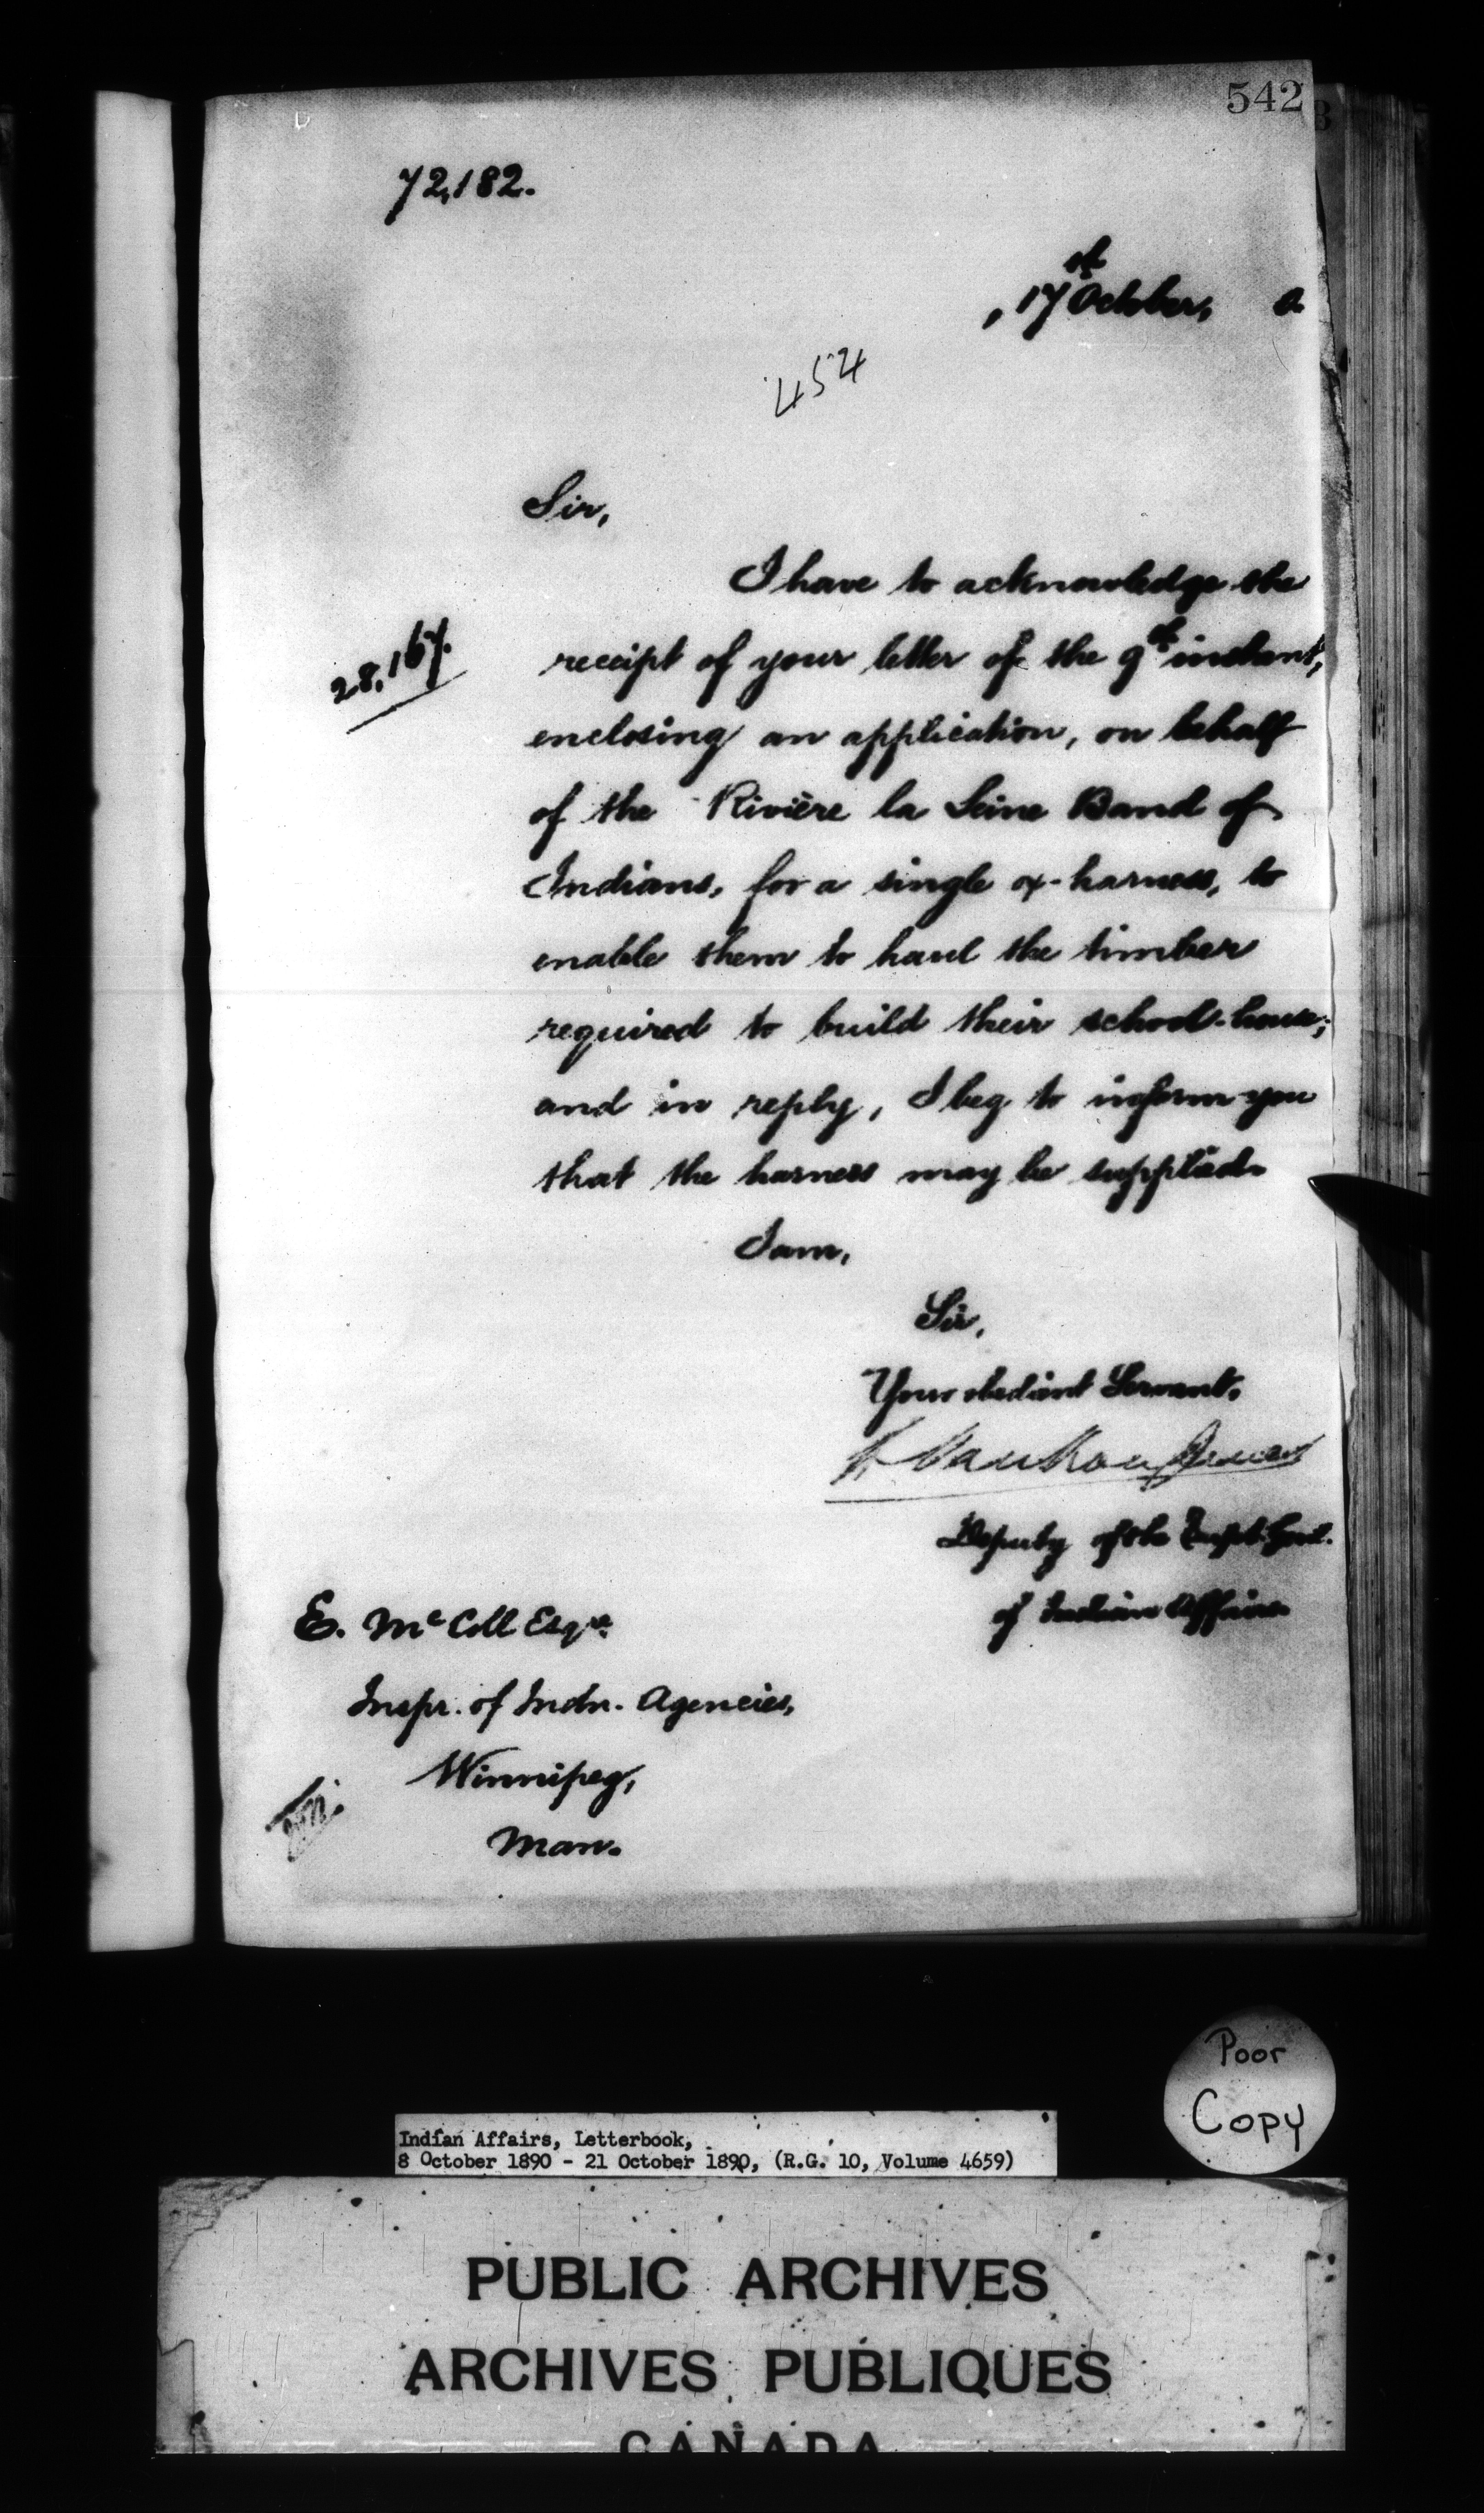 542
72,182.
17th October, 0
454
Sir,
I have to acknowledge the
28,167.
receipt of your letter of the 9th instant,
enclosing an application, on behalf
of the Rivière la Seine Band of
Indians, for a single ox-harness, to
enable them to haul the timber
required to build their school-house;
and in reply, I beg to inform you
that the harness may be supplied.
I am,
Sir,
Your obedient Servant,
L. Vankoughnet
Deputy of the Supt. Genl.
of Indian Affairs.
E. McColl Esqre.
Inspr. of Indn. Agencies,
Winnipeg,
Man.
Poor
Copy
Indian Affairs, Letterbook,
8 October 1890 - 21 October 1890, (R.G. 10, Volume 4659)
PUBLIC ARCHIVES
ARCHIVES PUBLIQUES
CANADA